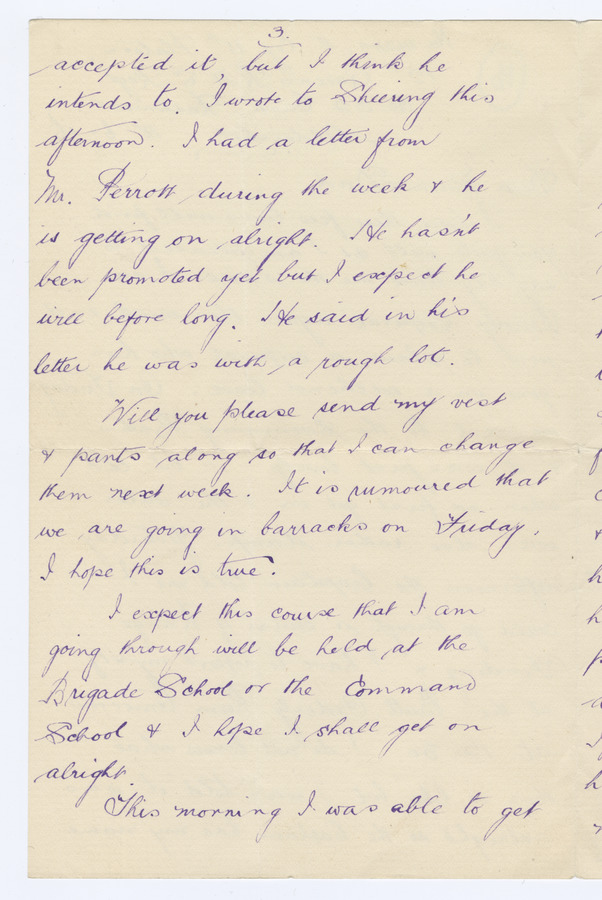 3.
accepted it, but I think he
intends to. I wrote to Sheering this
afternoon. I had a letter from
Mr. Perrott during the week & he
is getting on alright. He hasn't
been promoted yet but I expect he
will before long. He said in his
letter he was with a rough lot.
Will you please send my vest
& pants along so that I can change
them next week. It is rumoured that
we are going in barracks on Friday.
I hope this is true.
I expect this course that I am
going through will be held at the
Brigade School or the Command
School & I hope I shall get on
alright.
This morning I was able to get